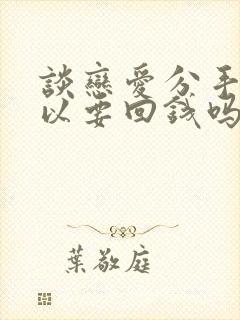 談戀愛分手
以要回錢嗎
葉敬庭